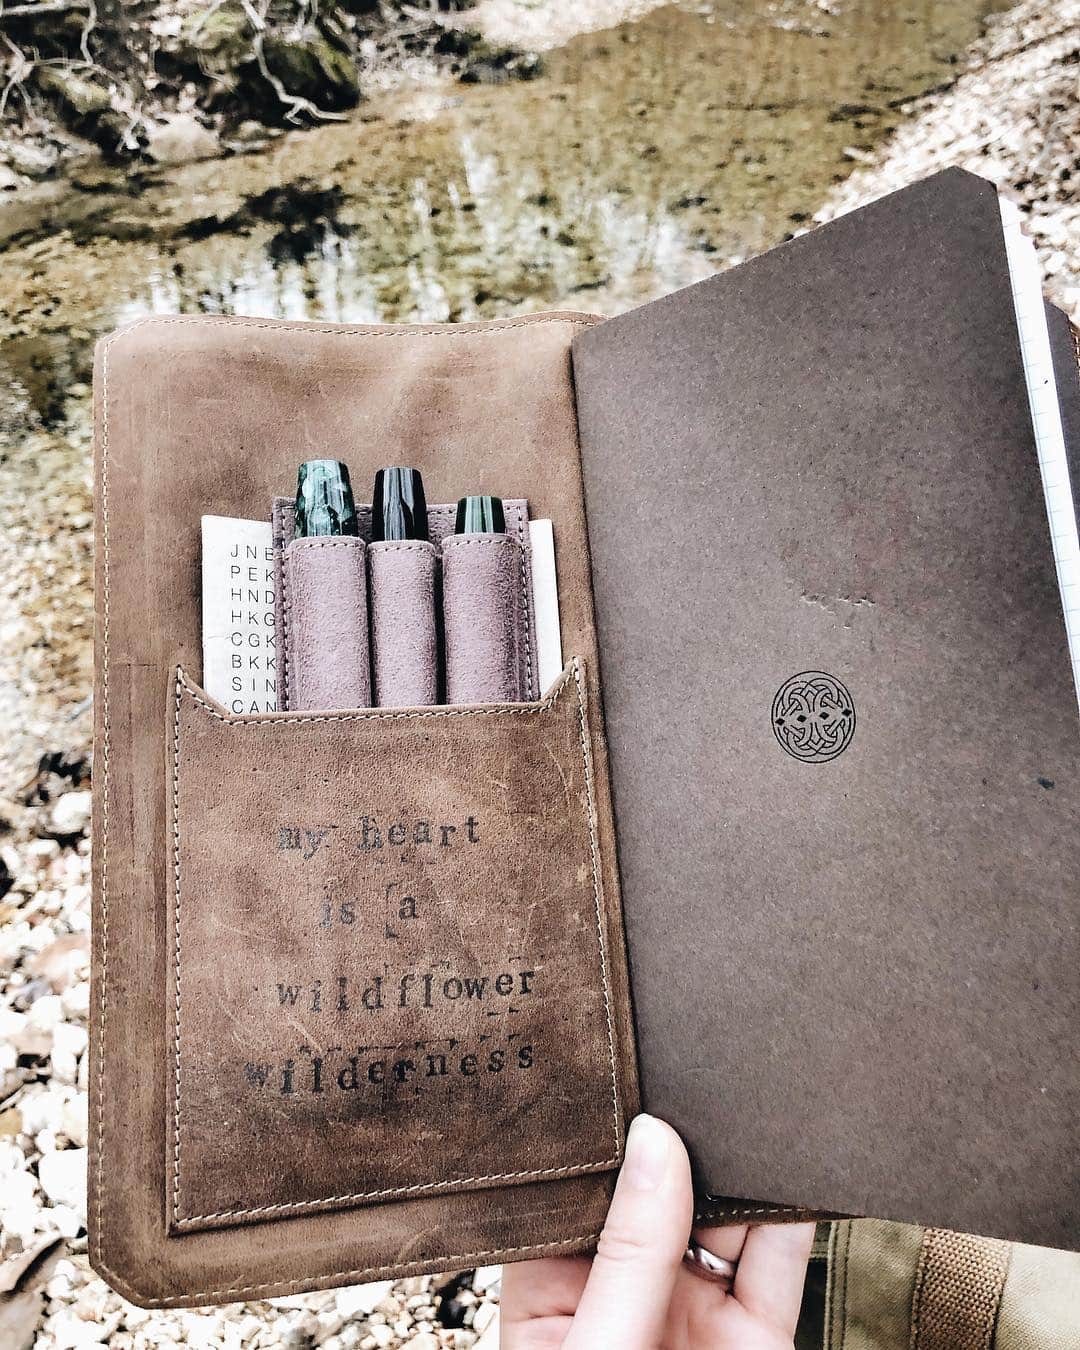 JNB
PEK
HND
HKG
CGK
BKK
SIN
CAN
my heart
is a
wildflower
wilderness